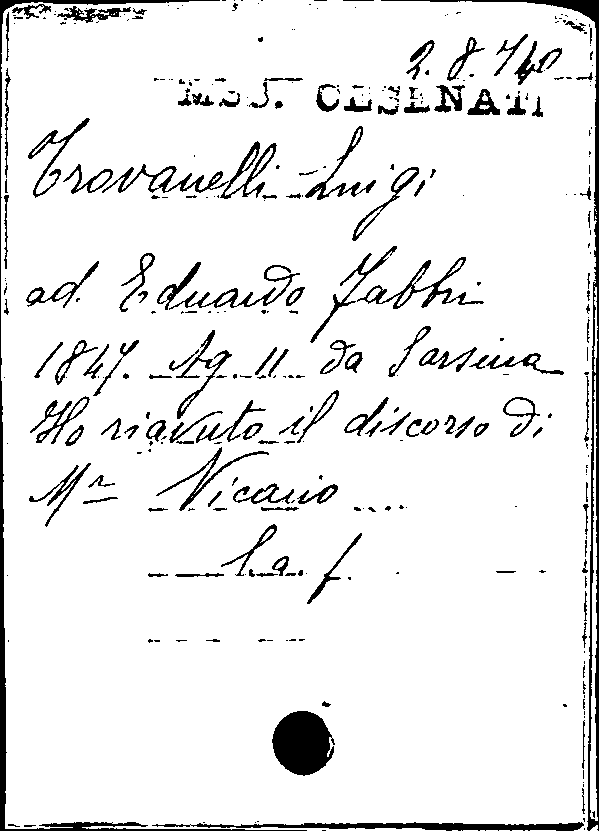 2.8.740
MSS. CESENATI
Trovanelli Luigi
ad. Eduardo Fabbri
1847. Ag. 11 da Sarsina
Ho riavuto il discorso di
Mr Vicario ....
l.a. f.